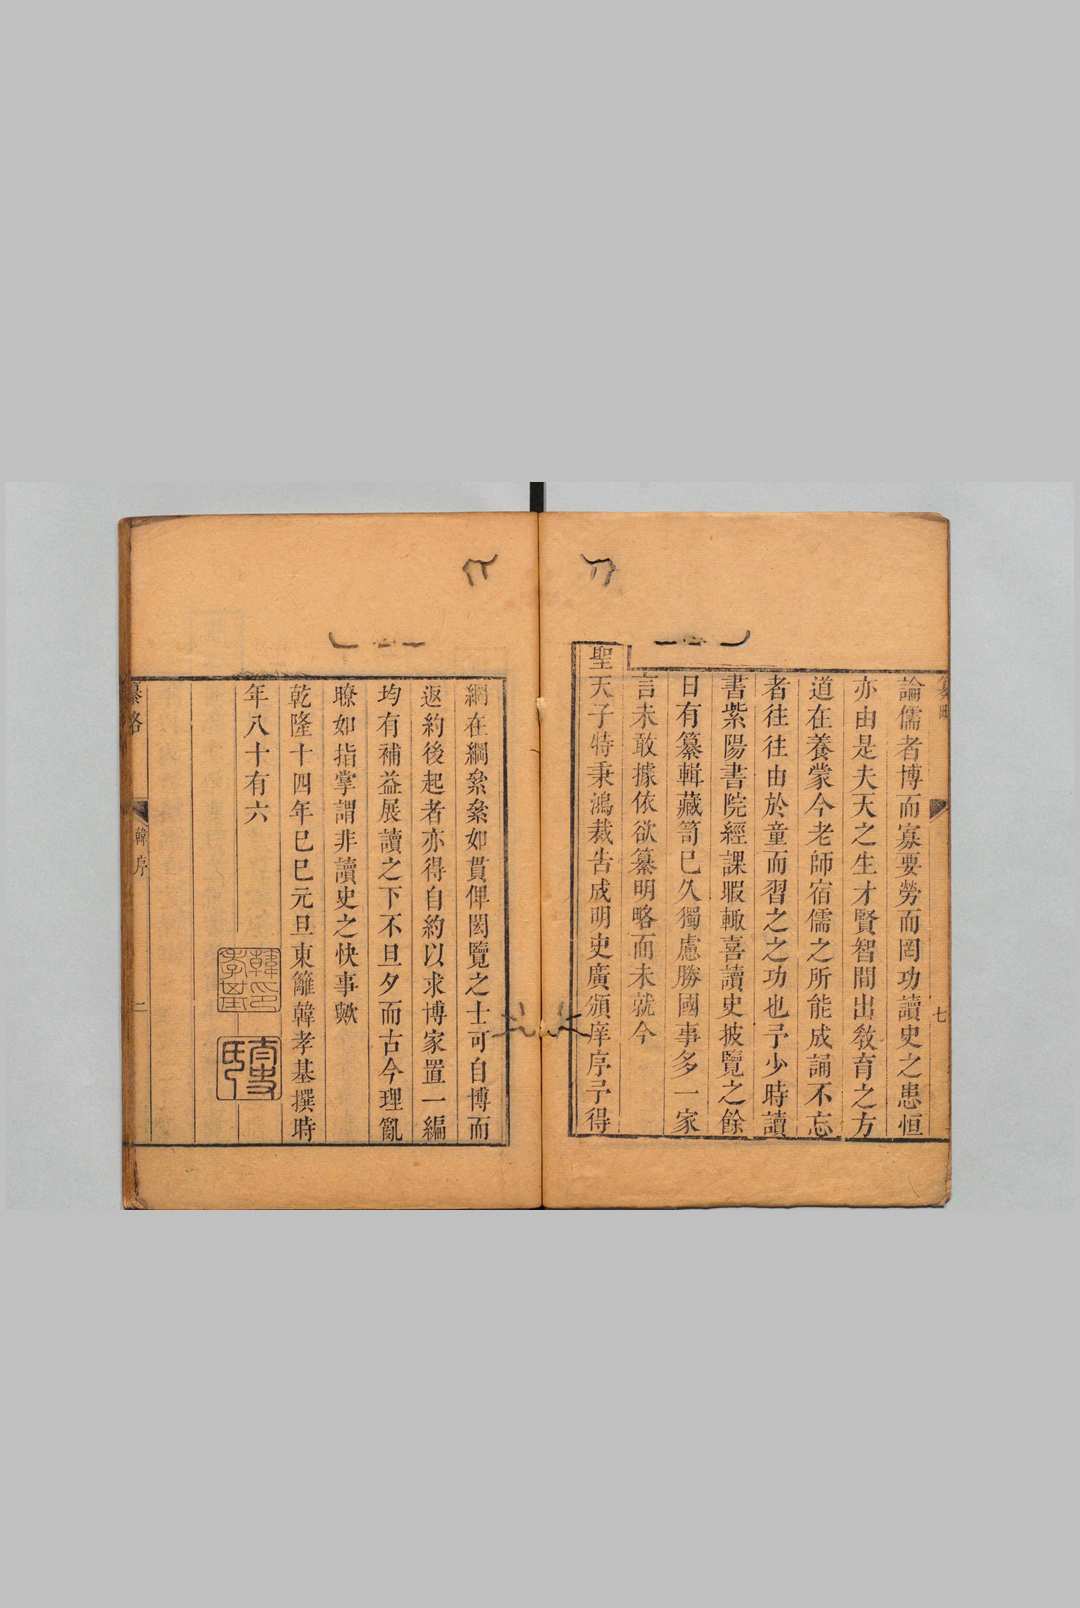 論儒者博而寡要勞而罔功讀史之患恒
亦由是夫天之生才賢智間出教育之方
道在養蒙今老師宿儒之所能成誦不忘
者往往由於童而習之之功也予少時讀
書紫陽書院經課暇輙喜讀史披覽之餘
日有纂輯藏笥已久獨慮勝國事多一家
言未敢據依欲纂明略而未就今
聖天子特秉鴻裁告成明史廣頒庠序予得
綱在綱纍纍如貫俾閎覽之士可自博而
返約後起者亦得自約以求博家置一編
均有補益展讀之下不旦夕而古今理亂
瞭如指掌謂非讀史之快事歟
乾隆十四年己巳元旦東籬韓孝基撰時
年八十有六
韓序
二